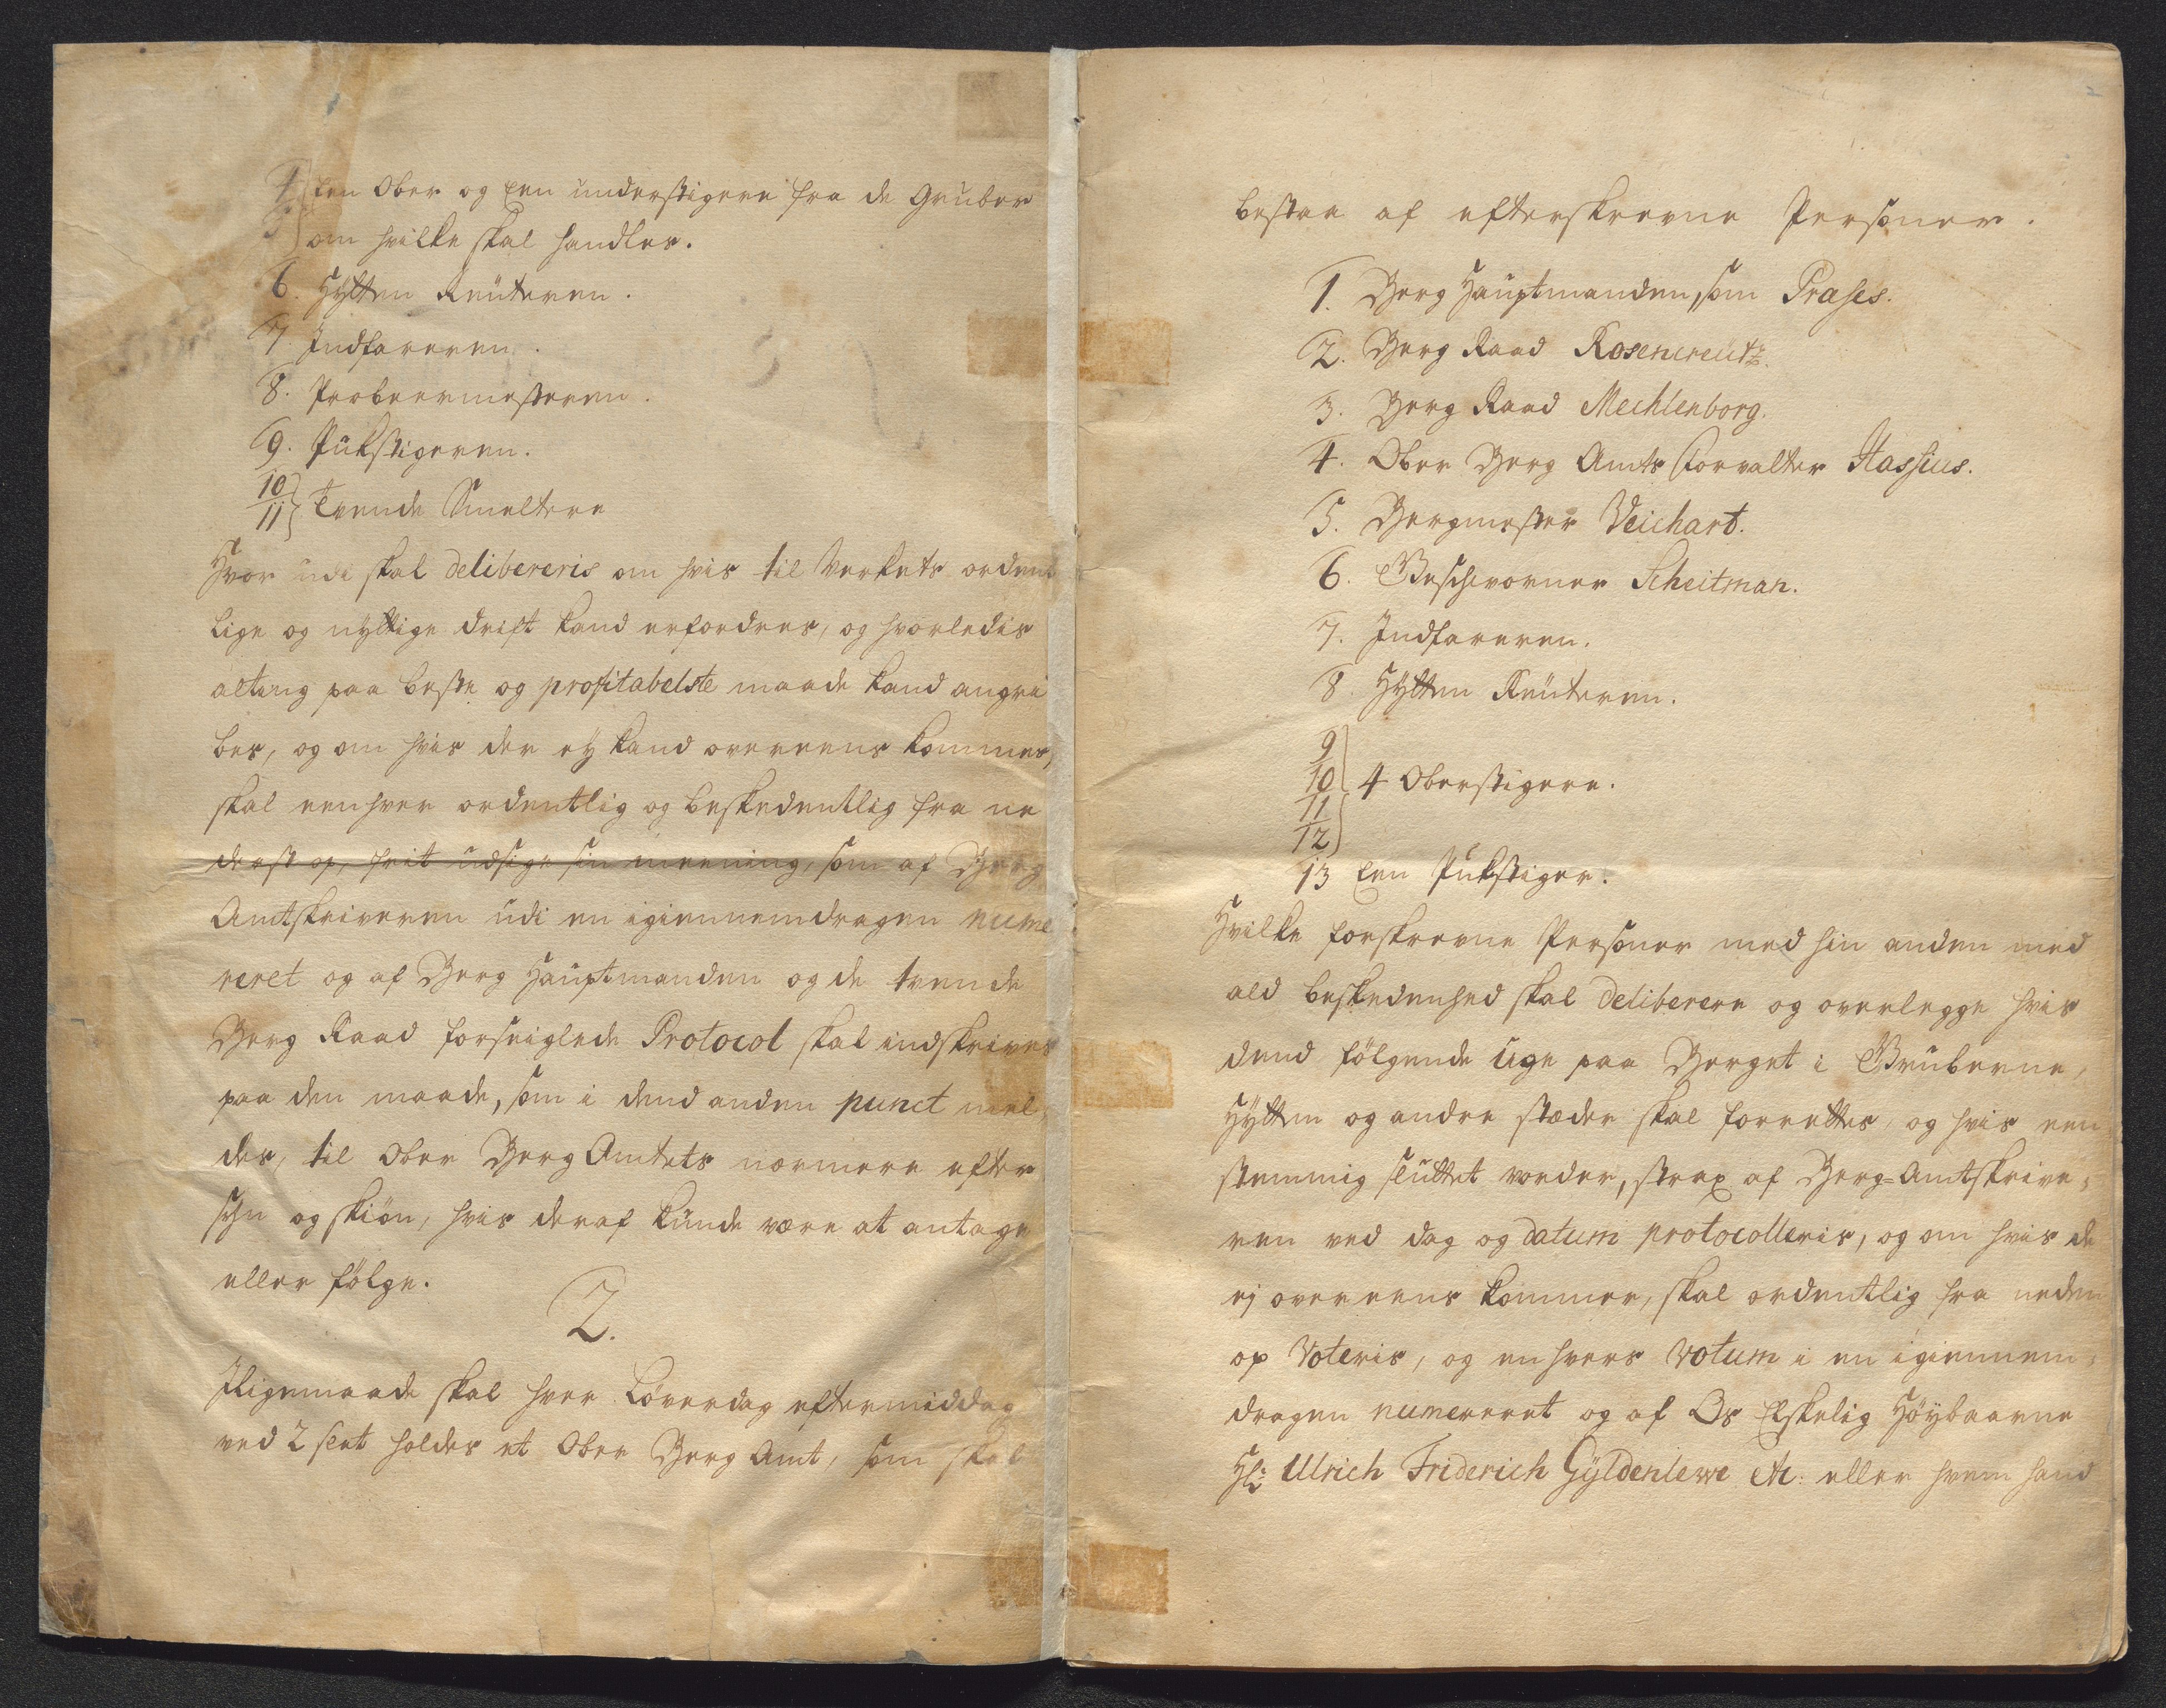 4 Een Ober og Een understigere fra de Gruber
5 om hvilke skal handles.
6. Hytten Reüteren.
7 Indfareren.
8. Probeermesteren.
9. Pükstigeren.
10
11 Tvende Smeltere
Hvor udi skal delibereris om hvis til Verkets ordent
lige og nyttige drift kand erfordres, og hvorledis
alting paa beste og profitabelste maade kand angri
bes, og om hvis der ey kand overeens kommes,
skal eenhver ordentlig og beskedentlig fra ne
derst op, frit üdsige sin meening, som af Berg
Amtskriveren üdi en igiennemdragen nume
reret og af Berg Haüptmanden og de tvende
Berg Raad forseiglede Protocol skal indskrives
paa den maade, som i dend anden punct mel,
des, til Ober Berg Amtets nærmere efter
sÿn og skiøn, hvis deraf künde være at antage
eller fölge.
2.
Jligemaade skal hver Löverdag eftermiddag
ved 2 slet holdes et Ober Berg Amt, som skal
bestaa af efterskrevne Personer.
1. Berg Haüptmanden, som Præses.
2. Berg Raad Rosencreütz.
3. Berg Raad Mechlenborg.
4. Ober Berg Amts Forvalter Hassius.
5. Bergmester Veichart.
6. Geschworner Scheitman.
7. Indfareren.
8. Hytten Reüteren.
9
10 4 Oberstigere.
11
12
13 Een Pükstiger.
Hvilke forskrevne Personer med hin anden med
ald beskedenhed skal deliberere og overlegge hvis
dend fölgende Uge paa Berget i Grüberne,
Hytten og andre stæder skal forrettes, og hvis een
stemmig slüttet vorder, strax af Berg-Amtskrive-
ren ved dag og datum protocolleris, og om hvis de
ej overeens kommer, skal ordentlig fra neden
op Voteris, og enhvers Votum i en igiennem-
dragen numereret og af Os Elskelig Höybaarne
Hr: Ulrich Friderich Gÿldenlewe etc: eller hvem hand